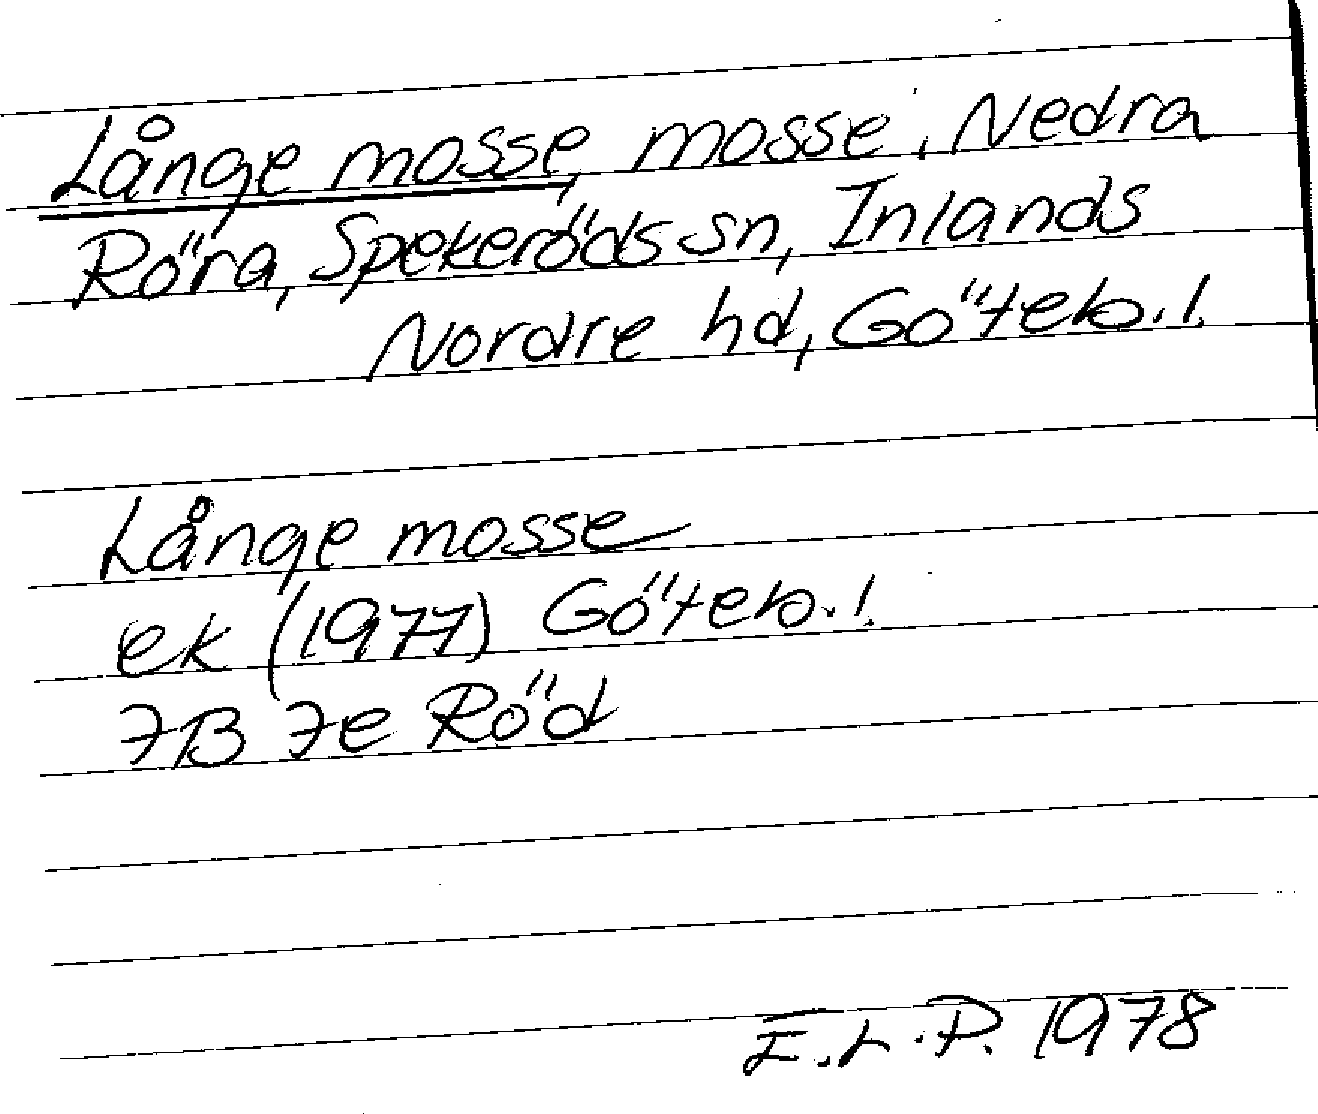 Långe mosse, mosse, Nedra
Röra, Spekeröds sn, Inlands
Nordre hd, Göteb.l.
Långe mosse
ek (1977) Göteb.l.
7B 7e Röd
E.L.P. 1978